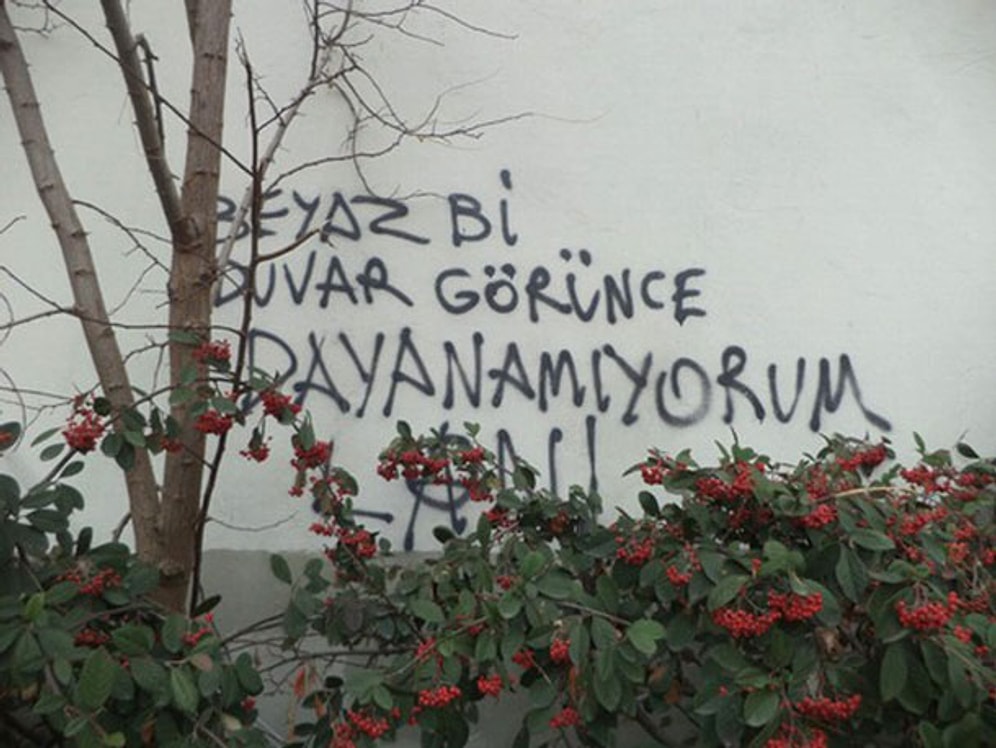 BEYAZ Bİ
DUVAR GÖRÜNCE
DAYANAMIYORUM
LAN!